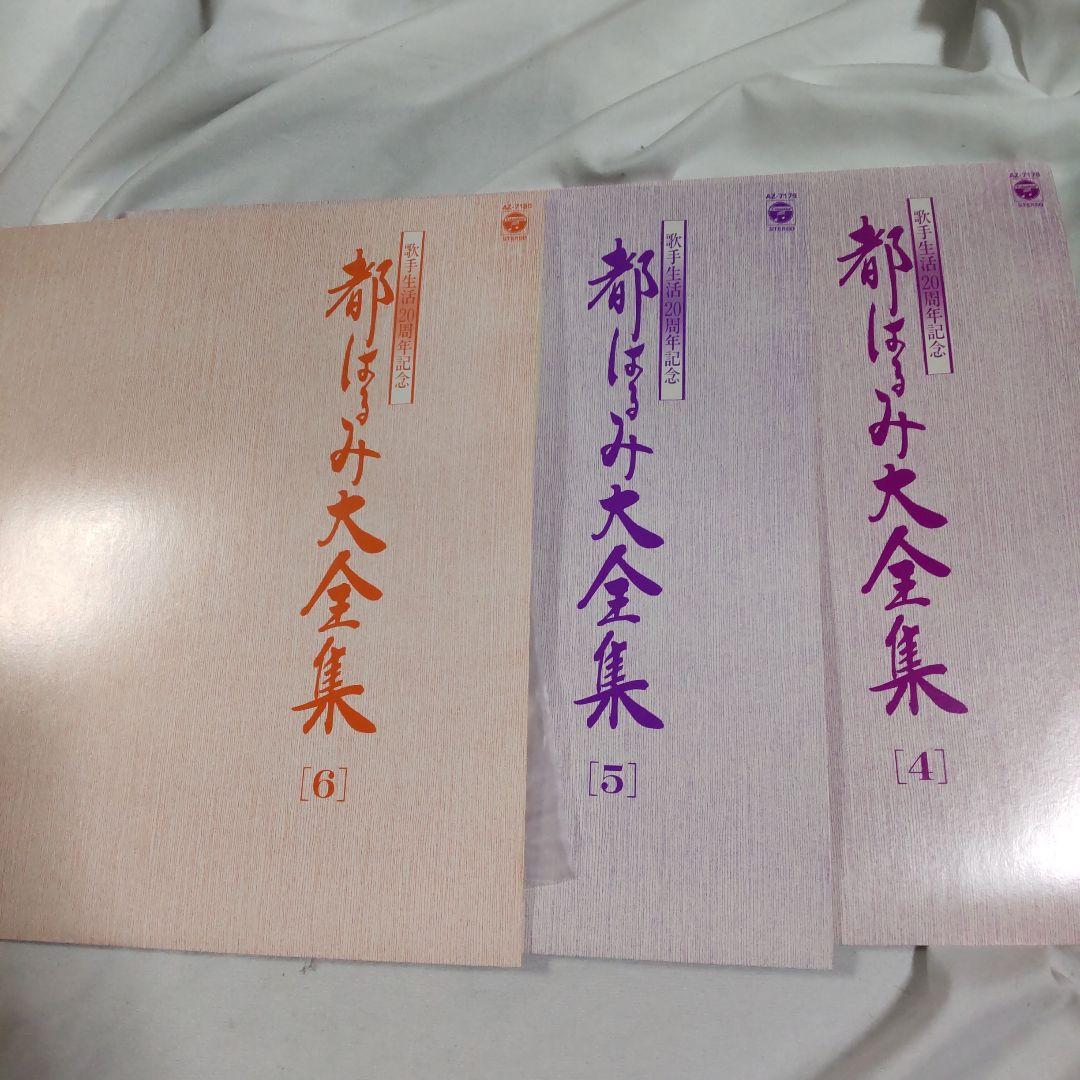 AZ-7180
STEREO
歌手生活20周年記念
都はるみ大全集
[6]
AZ-7179
STEREO
歌手生活20周年記念
都はるみ大全集
[5]
AZ-7178
STEREO
歌手生活20周年記念
都はるみ大全集
[4]